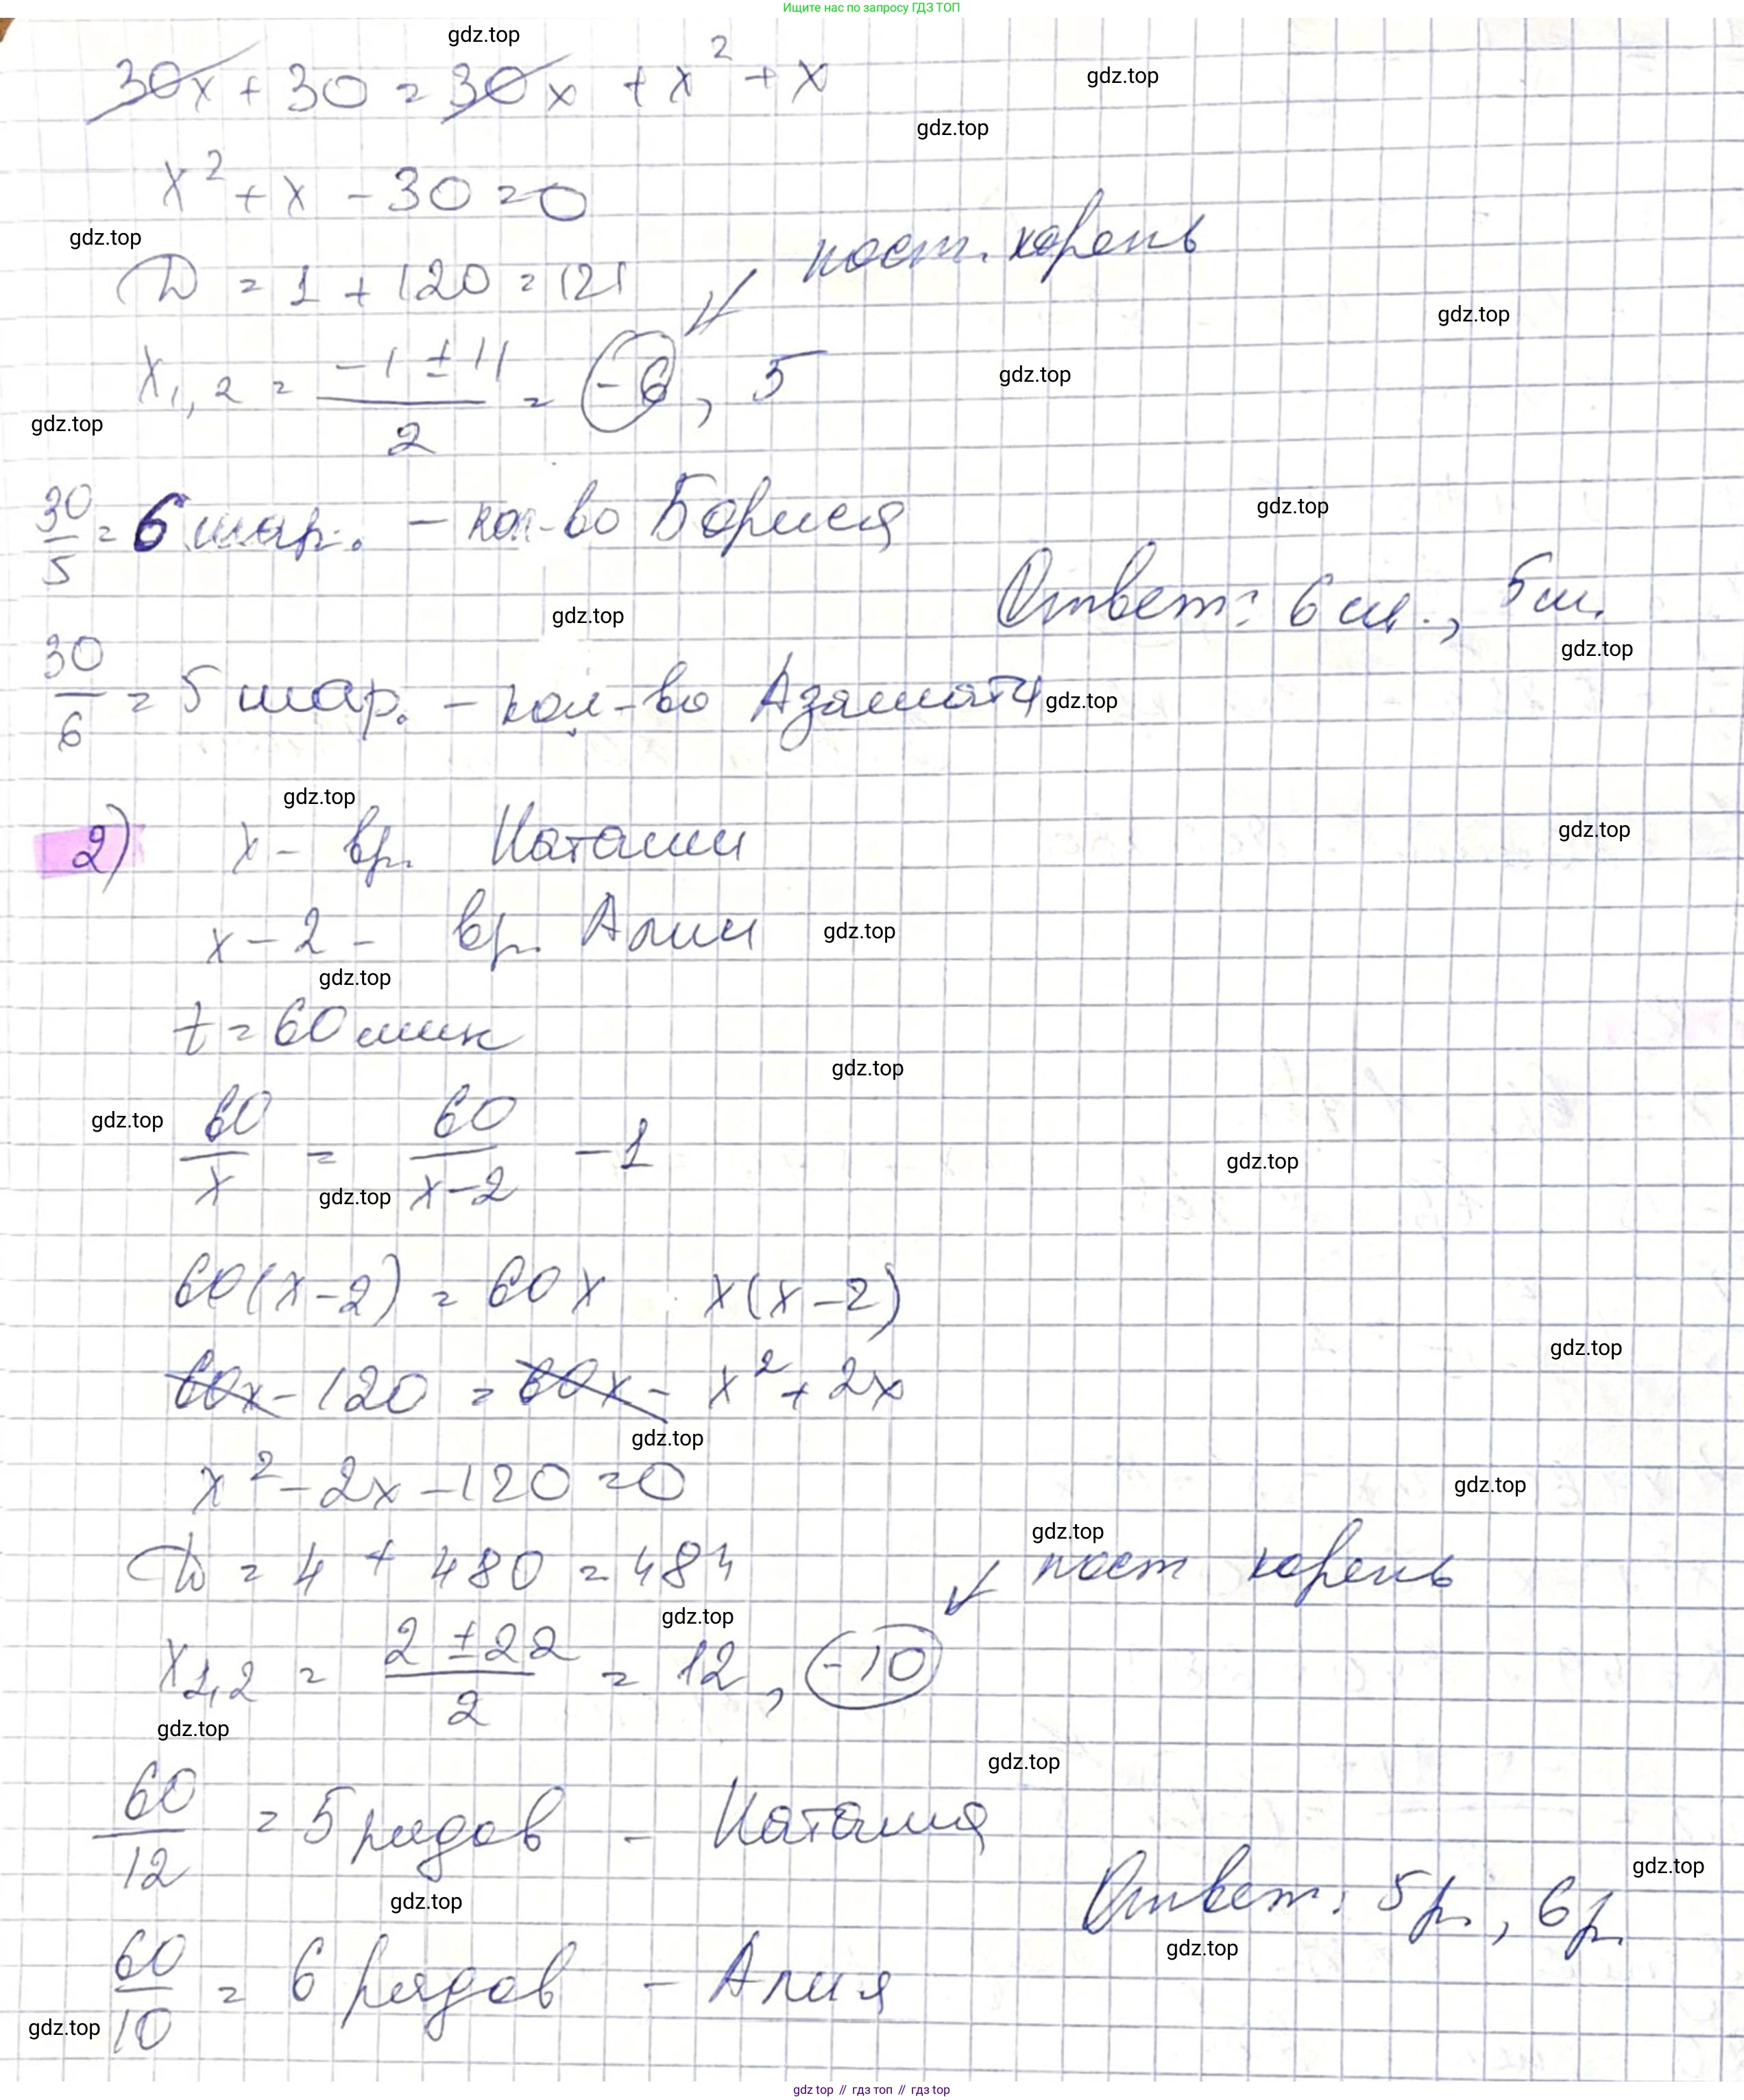 Ищите нас по запросу ГДЗ ТОП
gdz.top
30x + 30 = 30x + x² + x
gdz.top
gdz.top
x² + x - 30 = 0
gdz.top
D = 1 + 120 = 121
пост. корень
gdz.top
x₁,₂ = (-1 ± 11)/2 = -6, 5
gdz.top
gdz.top
30/5 = 6 шар. - кол-во Бориса
gdz.top
Ответ: 6 ш., 5 ш.
gdz.top
gdz.top
30/6 = 5 шар. - кол-во Азамата
gdz.top
gdz.top
2) x - вр. Наташи
gdz.top
x - 2 - вр. Алии
gdz.top
gdz.top
t = 60 мин
gdz.top
gdz.top
60/x = 60/(x-2) - 1
gdz.top
gdz.top
60(x-2) = 60x x(x-2)
gdz.top
60x - 120 = 60x - x² + 2x
gdz.top
x² - 2x - 120 = 0
gdz.top
gdz.top
D = 4 + 480 = 484
пост корень
gdz.top
x₁,₂ = (2 ± 22)/2 = 12, -10
gdz.top
gdz.top
60/12 = 5 рядов - Наташа
gdz.top
gdz.top
Ответ: 5 р., 6 р.
gdz.top
60/10 = 6 рядов - Алия
gdz.top
gdz top // гдз топ // гдз top